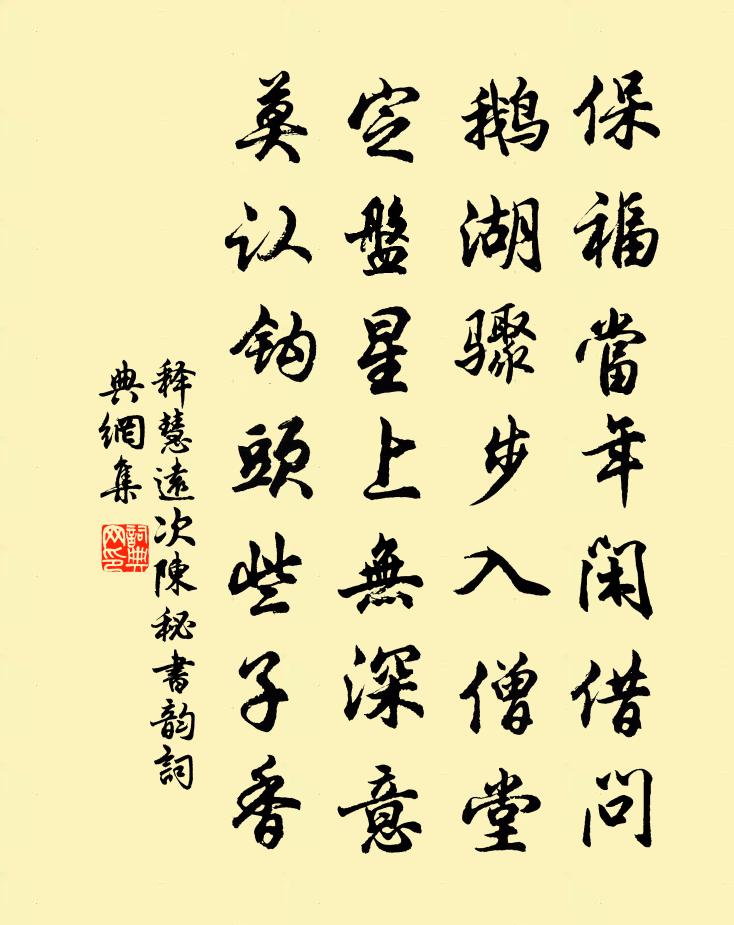 保福當年閑借問
鵝湖驟步入僧堂
定盤星上無深意
莫认鈎頭些子香
释慧遠次陳秘書韵詞
典網集
詞典网印